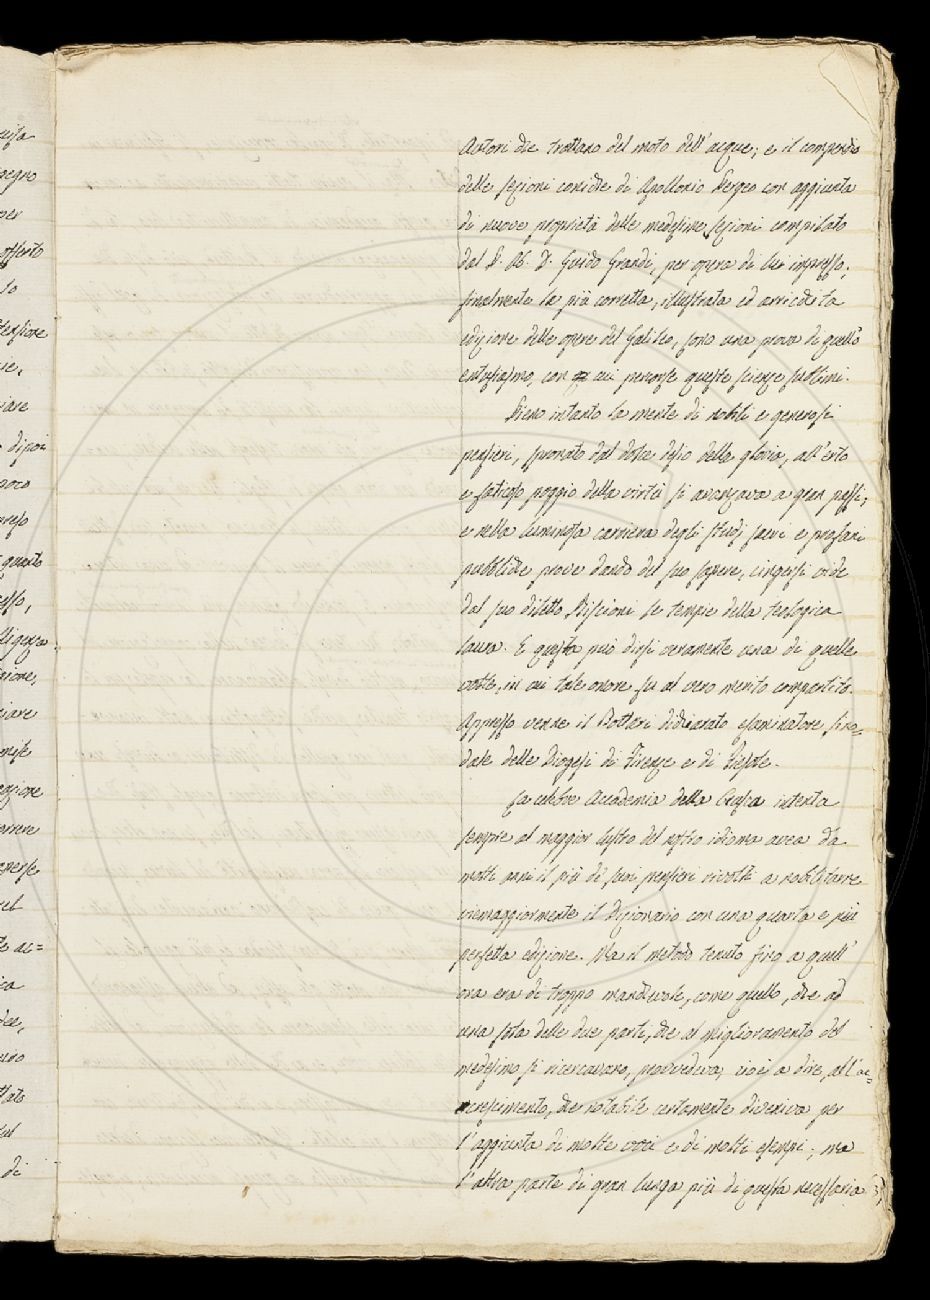 Autori che trattano del moto dell'acque; e il compendio
delle sezioni coniche di Apollonio Pergeo con aggiunta
di nuove proprietà delle medesime sezioni compilato
dal P. Ab. D. Guido Grandi, per opera di lui impresso;
finalmente la più corretta, illustrata ed arricchita
edizione delle opere del Galileo, sono una prova di quell'
entusiasmo, con cui percorse queste scienze sublimi.
Pieno intanto la mente di nobili e generosi
pensieri, spronato dal dolce desio della gloria, all'erto
e faticoso poggio della virtù si avanzava a gran passi;
e nella luminosa carriera degli studj sacri e profani
pubbliche prove dando del suo sapere, cingersi vide
dal suo diletto Biscioni le tempie della teologica
laurea. E questa può dirsi veramente una di quelle
volte, in cui tale onore fu al vero merito compartito.
Appresso venne il Bottari dichiarato esaminatore sino=
dale delle Diogesi di Firenze e di Fiesole.
La celebre Accademia della Crusca intenta
sempre al maggior lustro del nostro idioma avea da
molti anni il più de' suoi pensieri rivolti a nobilitarne
viemaggiormente il Dizionario con una quarta e più
perfetta edizione. Ma il metodo tenuto fino a quell'
ora era di troppo manchevole, come quello, che ad
una sola delle due parti, che al miglioramento del
medesimo si ricercavano, provvedeva, cioè a dire, all'ac=
crescimento, che notabile certamente diveniva per
l'aggiunta di molte voci e di molti esempi; ma
l'altra parte di gran lunga più di questa necessaria